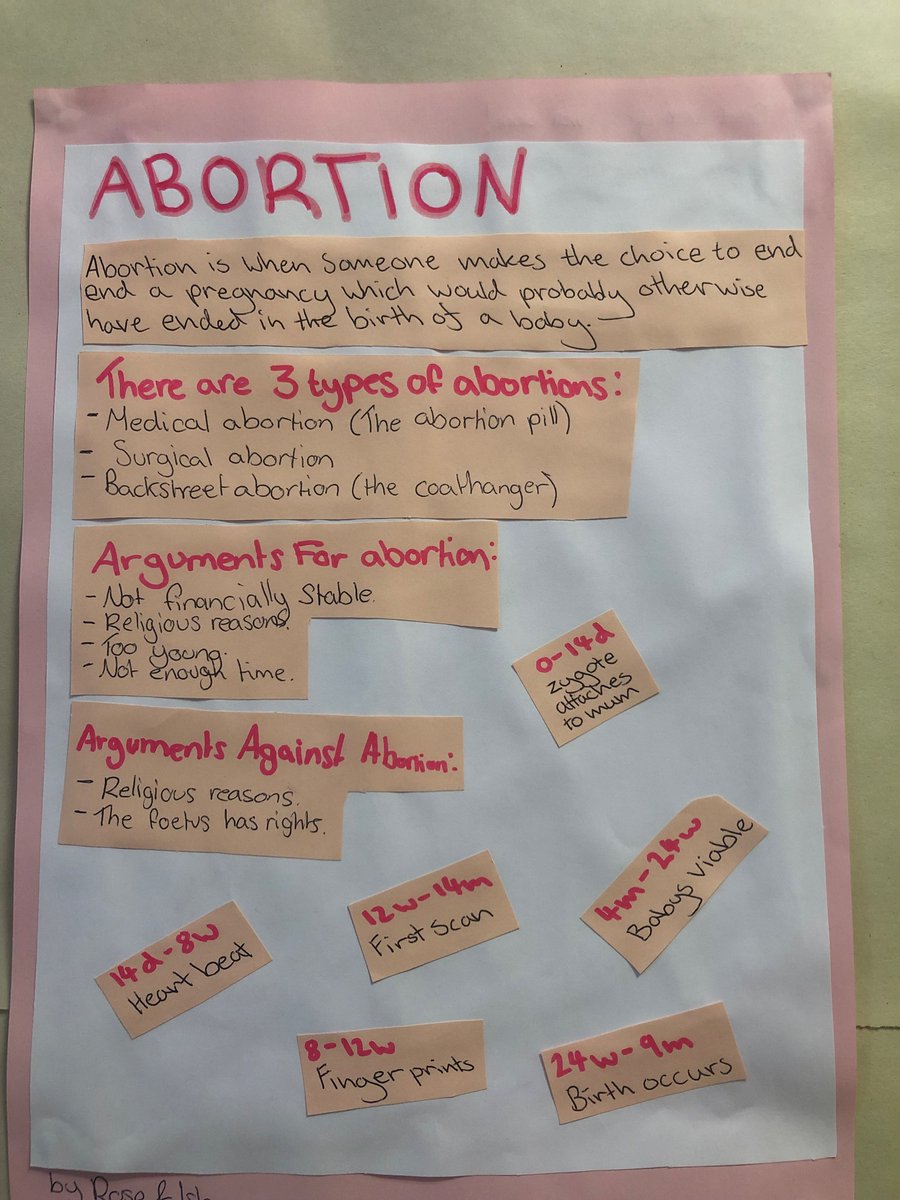 ABORTION
Abortion is when someone makes the choice to end
end a pregnancy which would probably otherwise
have ended in the birth of a baby.
There are 3 types of abortions:
- Medical abortion (The abortion pill)
- Surgical abortion
- Backstreet abortion (the coathanger)
Arguments For abortion:
- Not financially Stable.
- Religious reasons.
- Too young.
- Not enough time.
0-14d
zygote
attaches
to mum
Arguments Against Abortion:
- Religious reasons.
- The foetus has rights.
4m-24w
Babys viable
12w-14m
First Scan
14d-8w
Heart beat
8-12w
Finger prints
24w-9m
Birth occurs
by Rose &